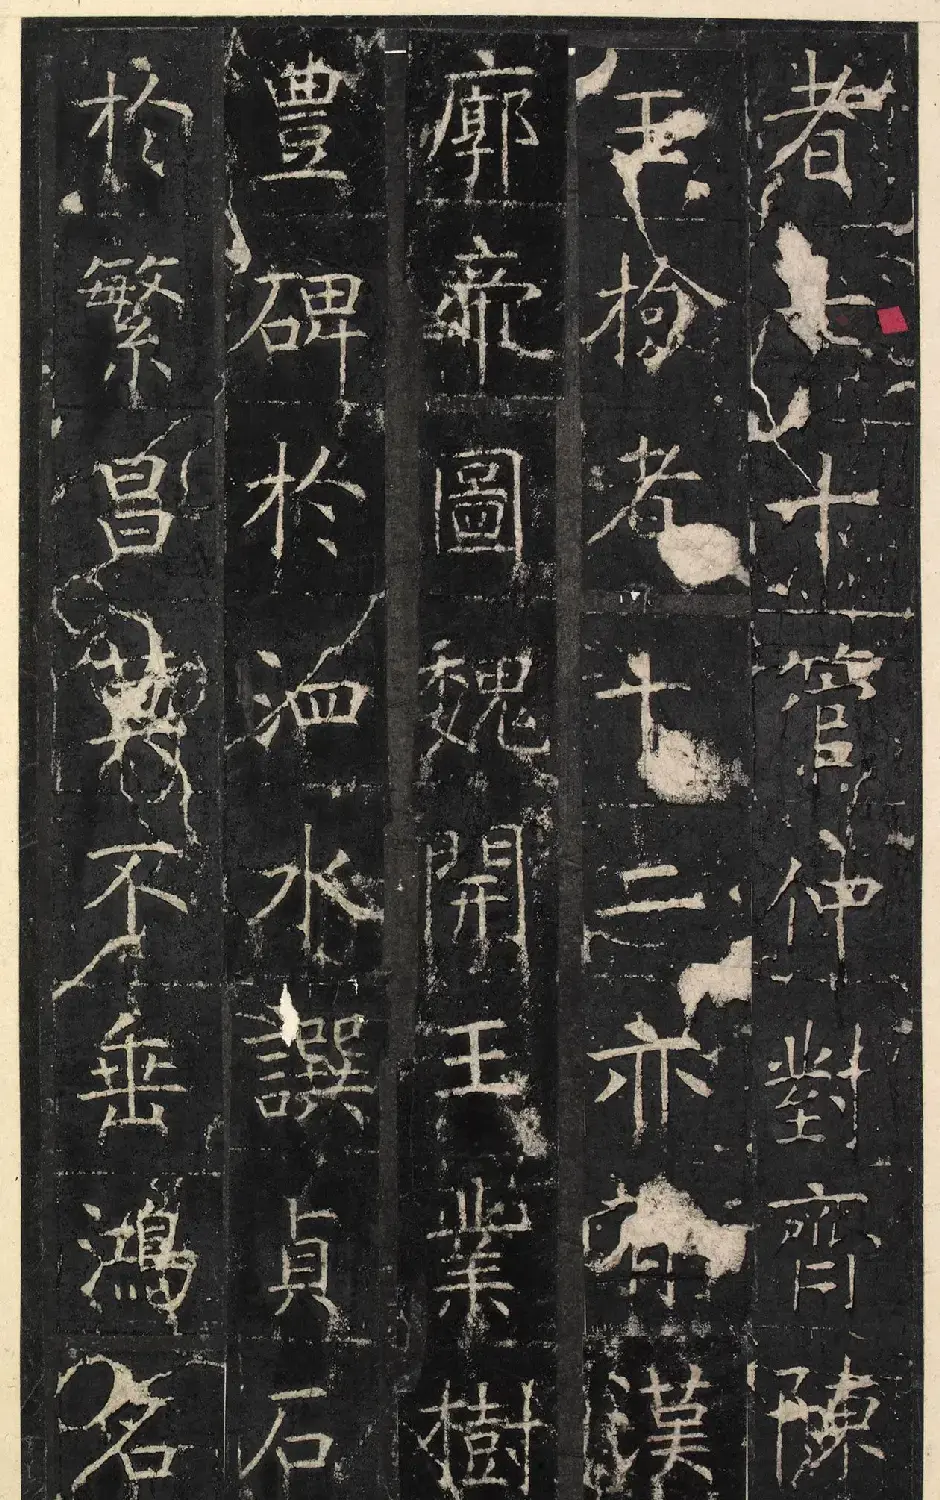 者七十管仲對齊陳
玉者十二亦漢
廓帝圖魏開王業樹
豊碑於泗水譔貞石
於繁昌莫不垂鴻名